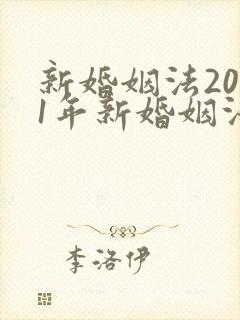 新婚姻法20
1年新婚姻法
李洛伊